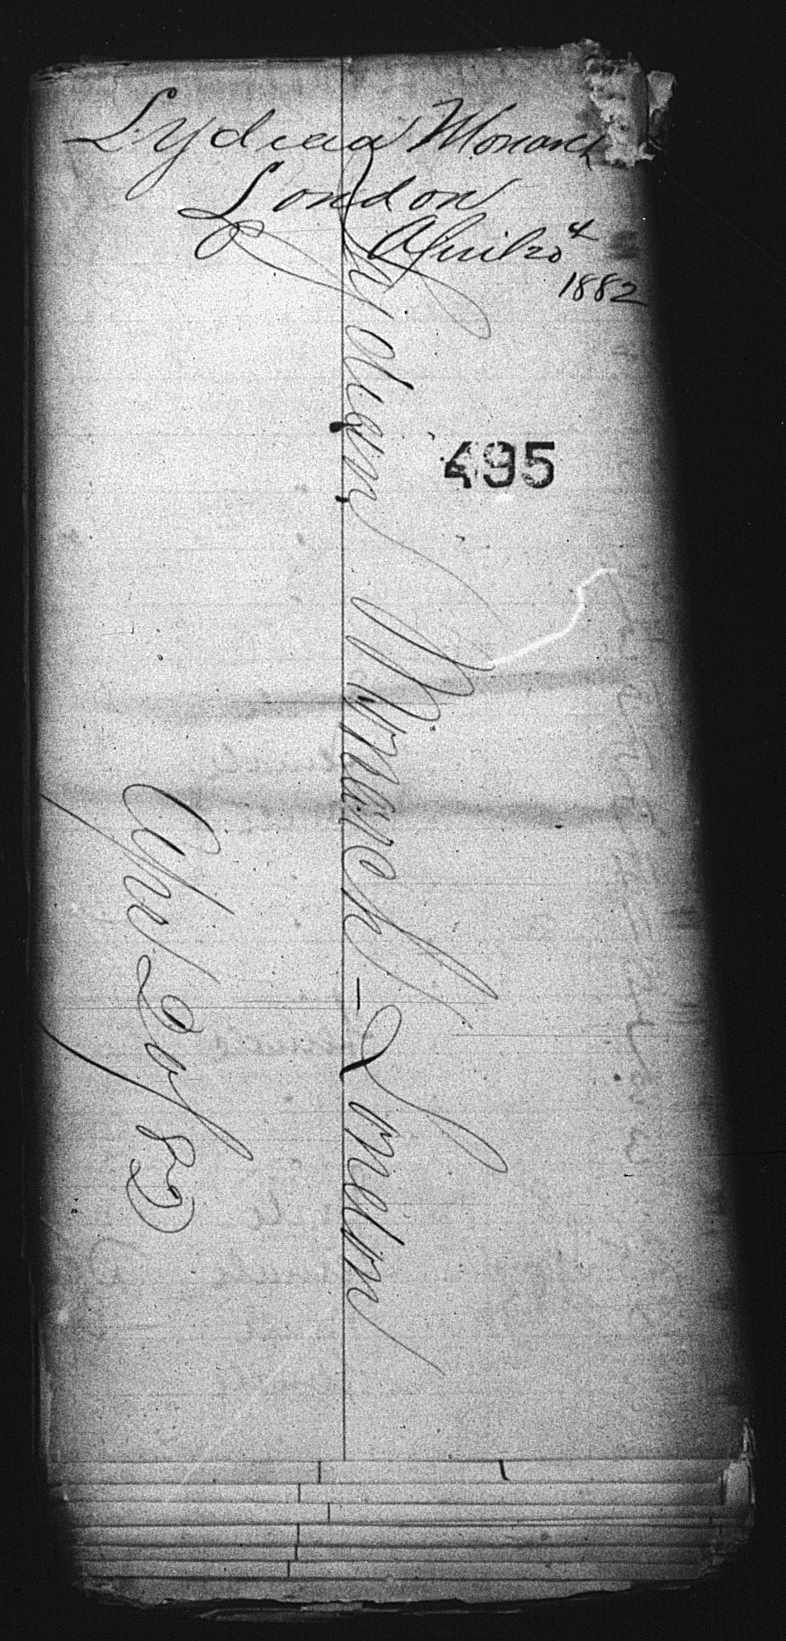 Lydian Monarch
London
April 20th
1882
495
Lydian Monarch - London
Apr 20/82